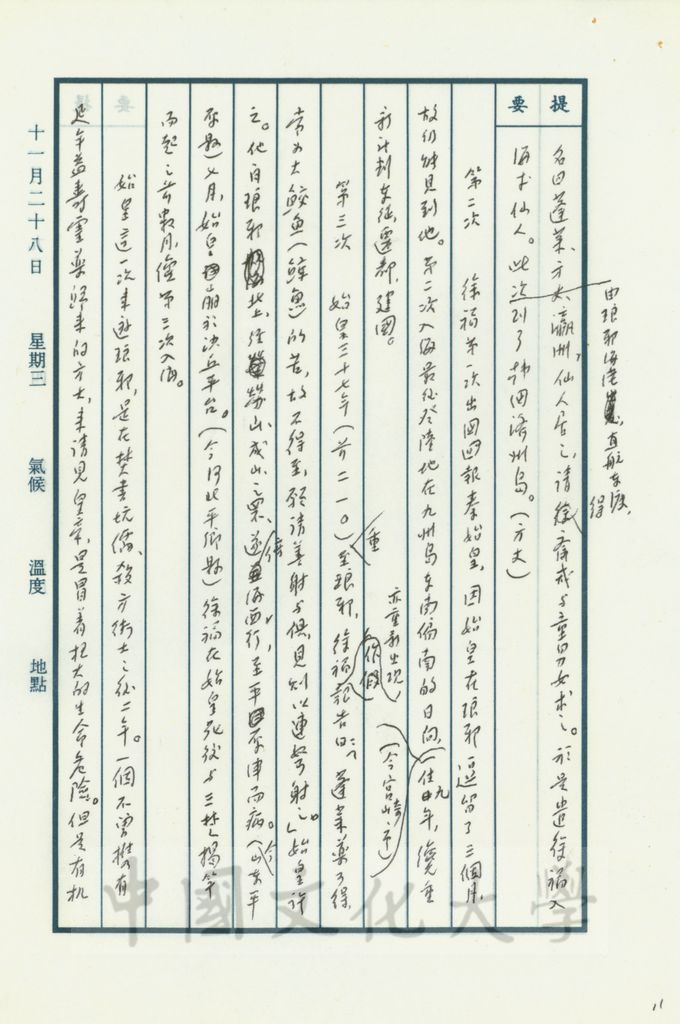 提要
由琅邪海港直航東渡,
名曰蓬萊、方丈、瀛洲,仙人居之,請得齋戒與童男女求之。於是遣徐福入
海求仙人。此次到了韓國濟州島。(方丈)
第二次 徐福第一次出國回報秦始皇,因始皇在琅邪逗留了三個月,
故仍能見到他。第二次入海最後登陸地在九州島東南偏南的日向,(今宮崎市)(住九年,纔重
新計劃東征,遷都,建國。
第三次 始皇三十七年(前二一〇)重至琅邪,徐福亦重新出現,作假報告曰:「蓬萊藥可得,
常為大鮫魚(鯨魚)所苦,故不得至,願請善射與俱,見則以連弩射之。」始皇許
之。他自琅邪北上,經勞山、成山、之罘,遂傍海西行,至平原津而病。(今山東平
原縣)七月,始皇崩於沙丘平台。(今河北平鄉縣)徐福在始皇死後與三楚揭竿
而起之前數月,第三次入海。
始皇這一次來遊琅邪,是在焚書坑儒、殺方術士之後二年。一個不曾獲有
延年益壽靈藥歸來的方士,來請見皇帝,是冒着極大的生命危險。但是有机
十一月二十八日 星期三 氣候 溫度 地點
中國文化大學
11